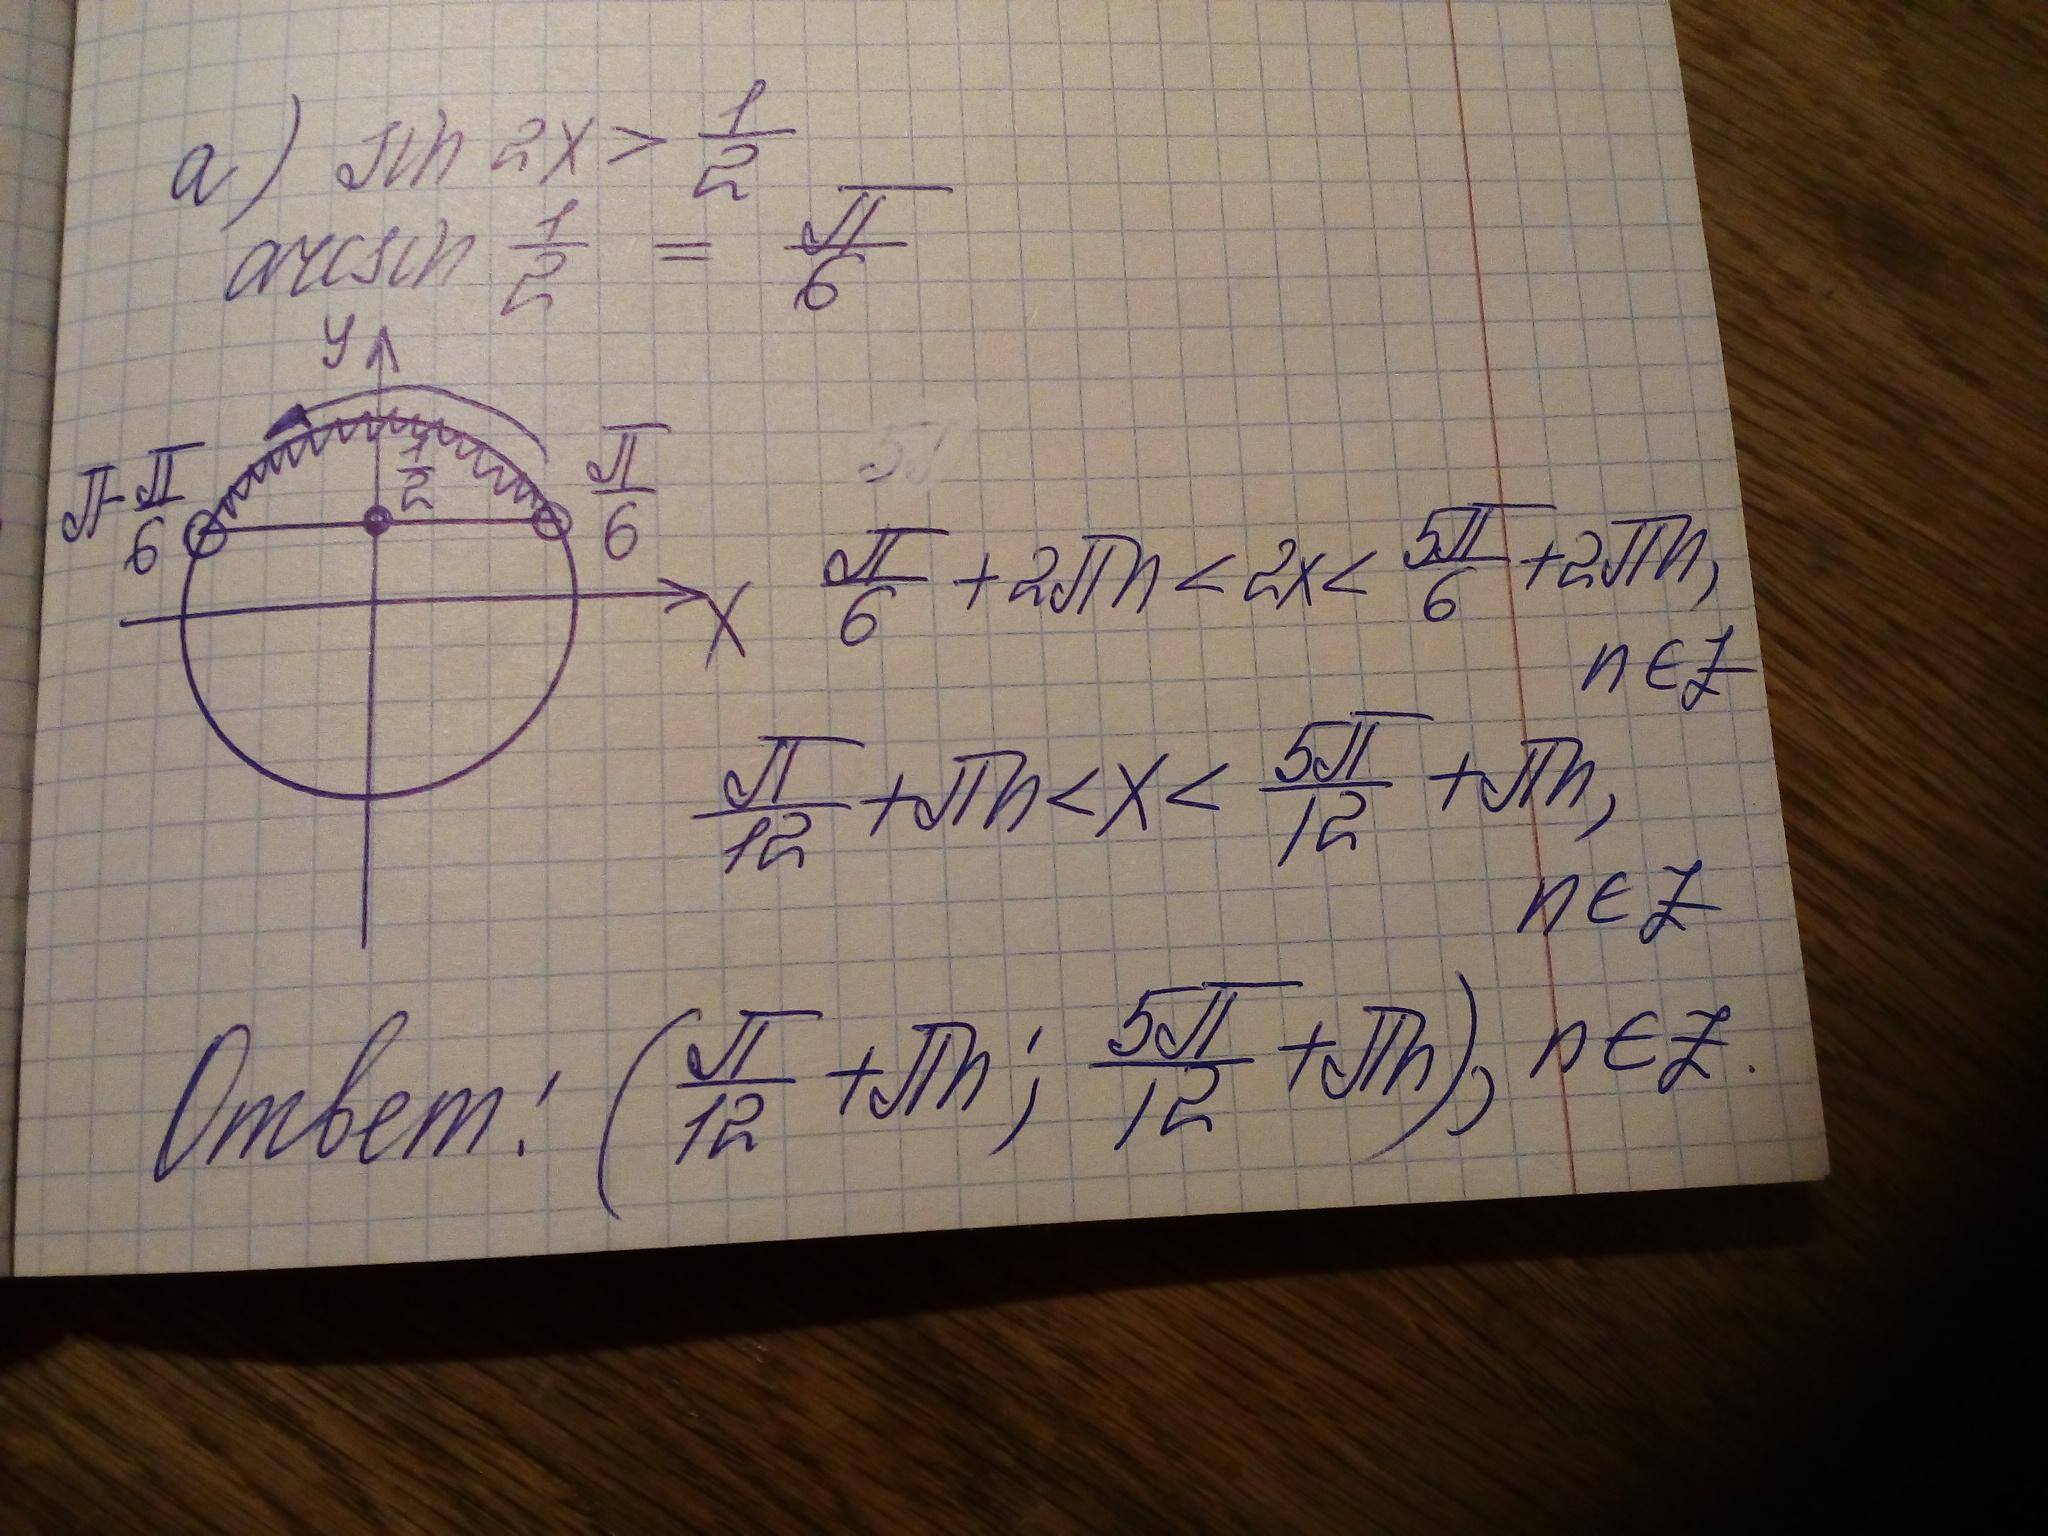 а) sin 2x > 1/2
arcsin 1/2 = π/6
y
1/2
π - π/6
π/6
x
5π
π/6 + 2πn < 2x < 5π/6 + 2πn,
n ∈ Z
π/12 + πn < x < 5π/12 + πn,
n ∈ Z
Ответ: (π/12 + πn; 5π/12 + πn), n ∈ Z.